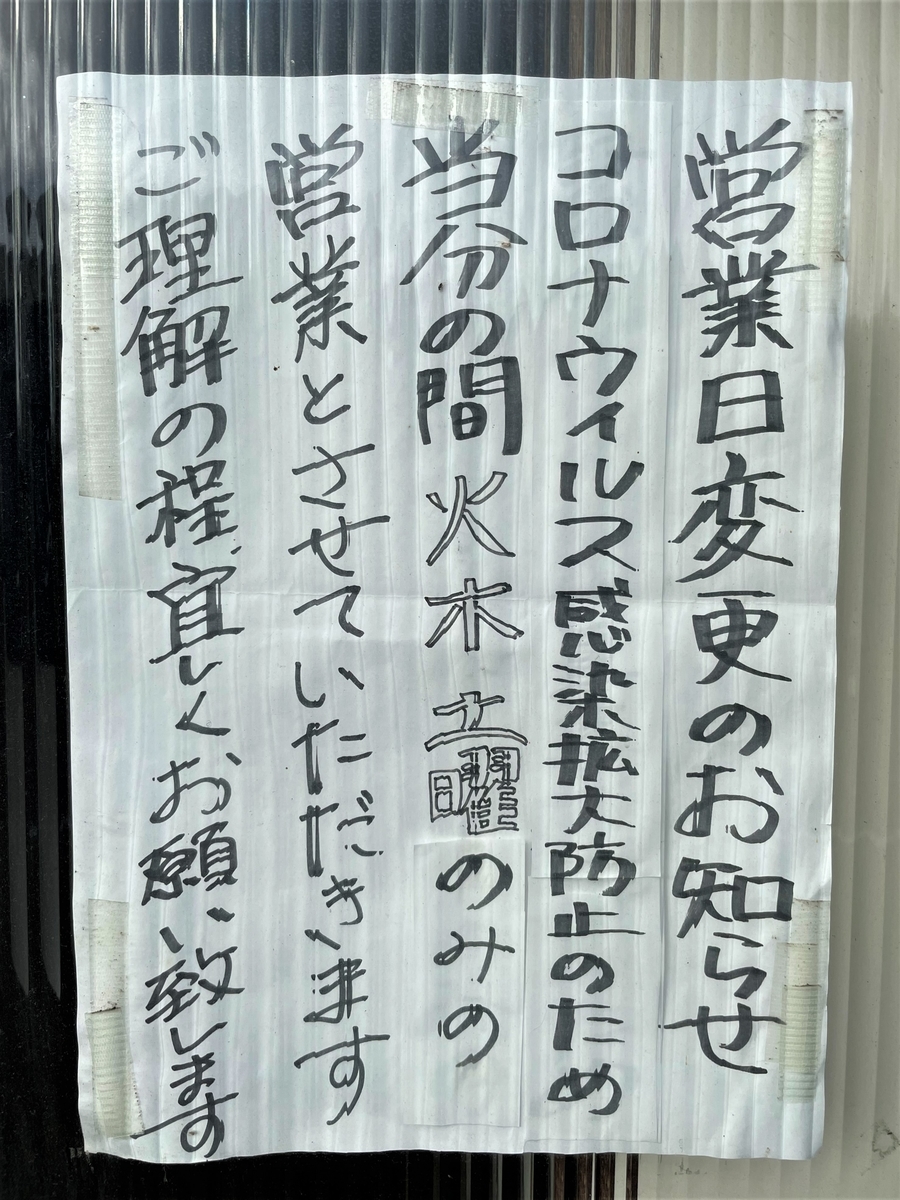 営業日変更のお知らせ
コロナウィルス感染拡大防止のため
当分の間火木土曜のみの
営業とさせていただきます
ご理解の程、宜しくお願い致します